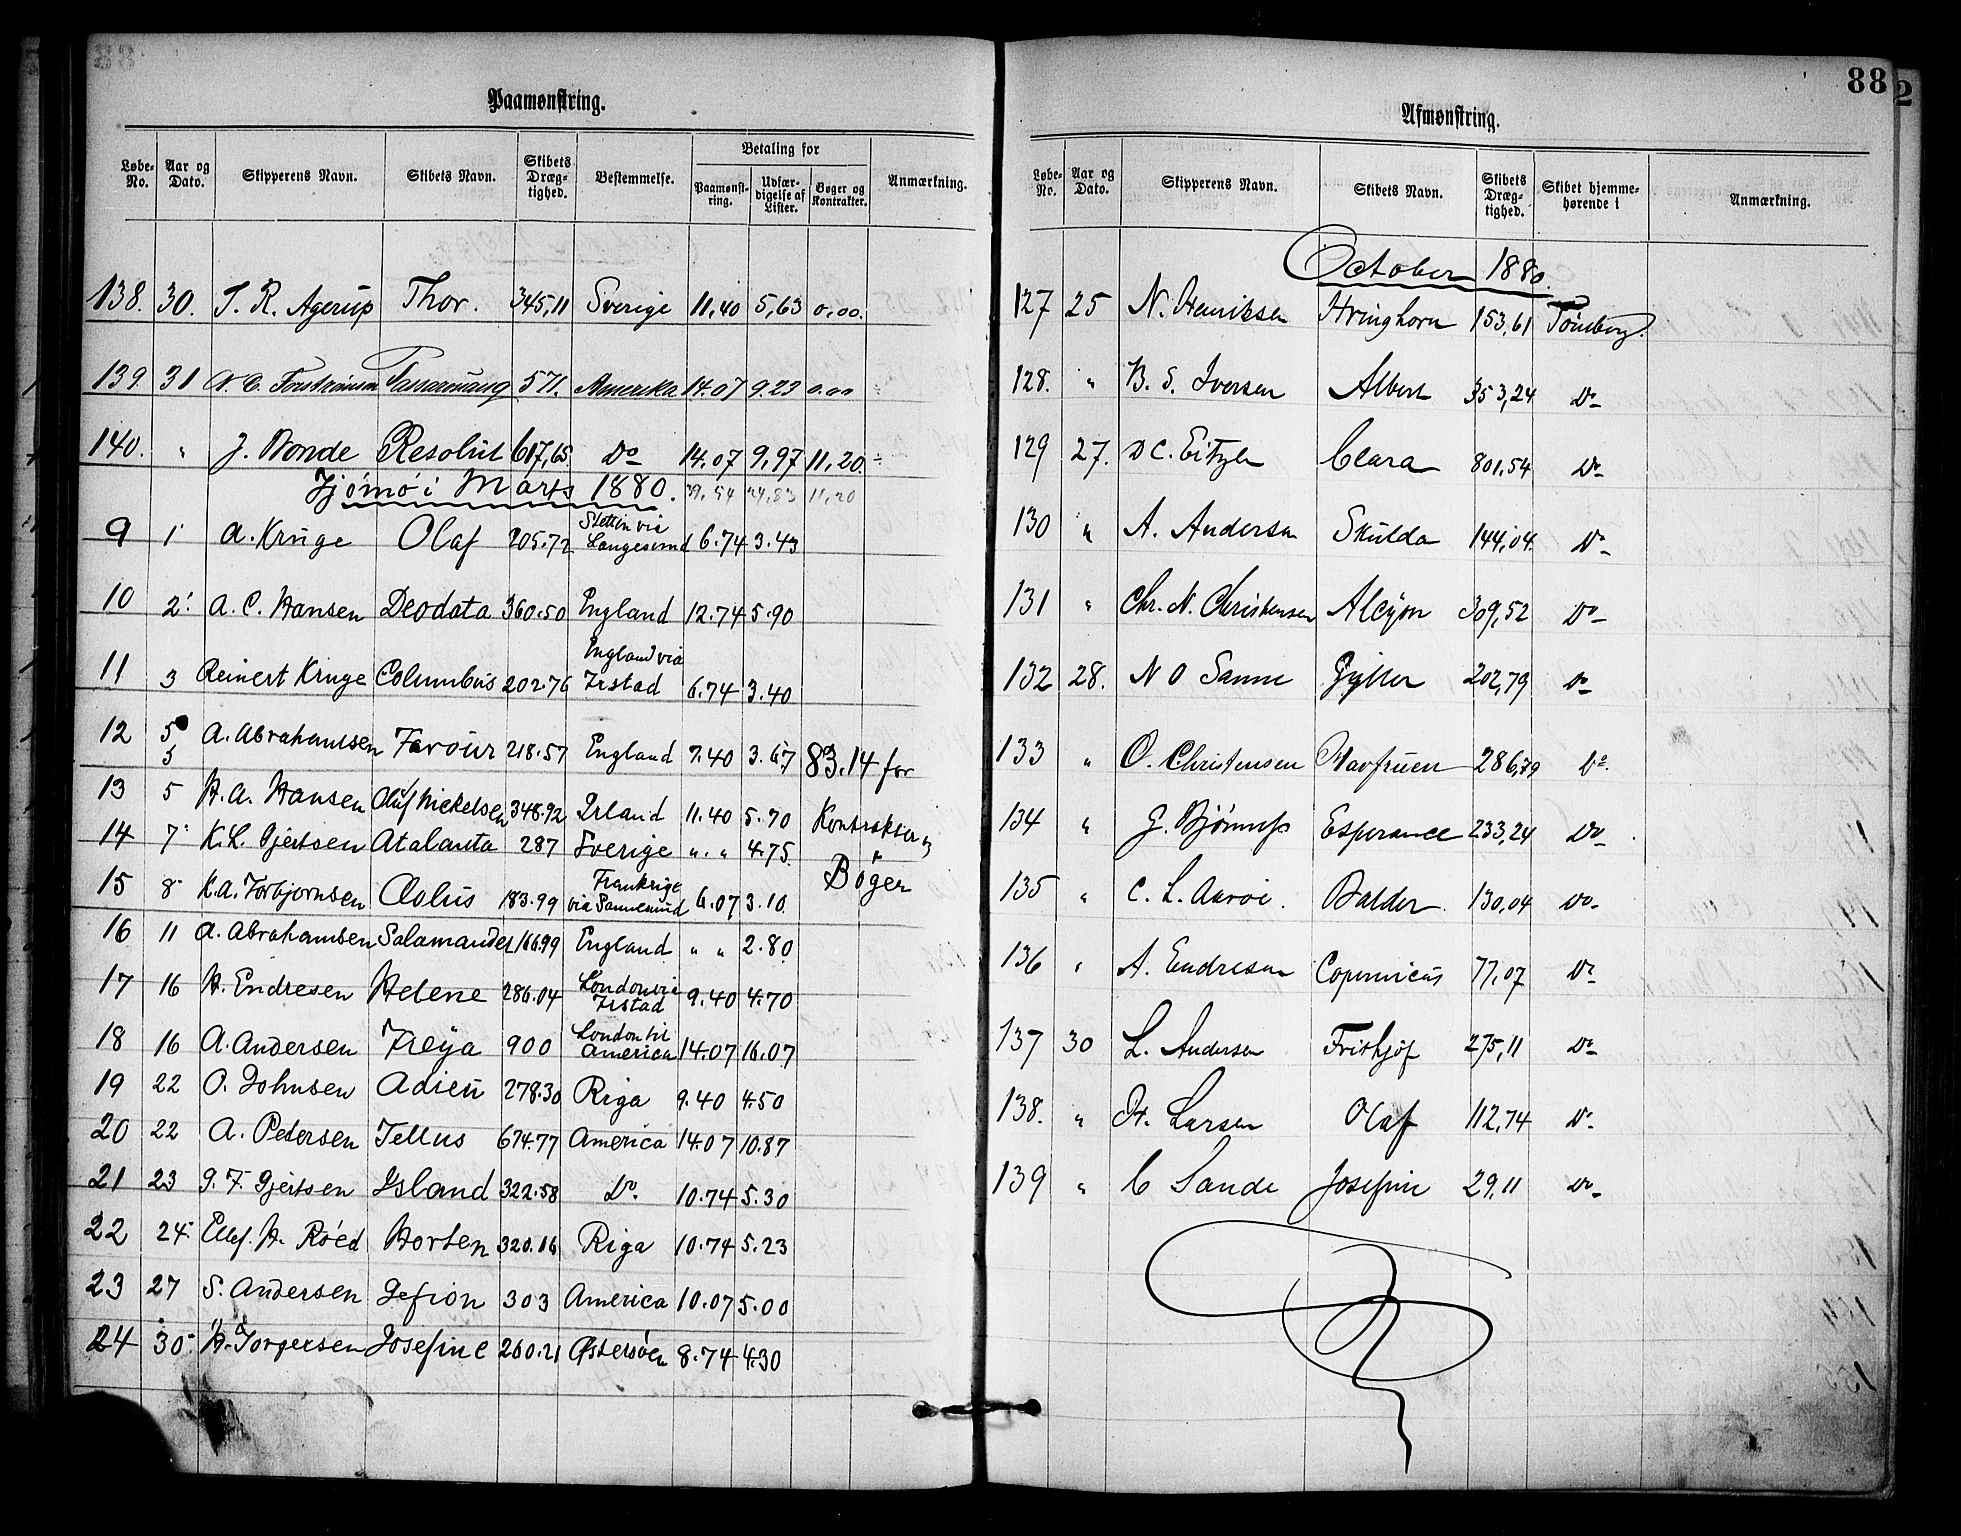 88
Paamønstring.
Løbe-No. Aar og Dato. Skipperens Navn. Skibets Navn. Skibets Dræg-tighed. Bestemmelse. Betaling for Paamønst-ring. Udfær-digelse af Lister. Bøger og Kontrakter. Anmærkning.
138. 30. T. R. Agerup Thor. 345,11 Sverige 11,40 5,63 0,00.
139 31 571. Amerika 14.07 9.23 0.00
140. " J. Bonde Resolut 617,65 Do 14.07 9,97 11,20
Tjømø i Marts 1880. 39,54 24,83 11,20
9 1 A. Kruge Olaf 205.72 Stettin via Langesund 6.74 3.43
10 2. A. C. Hansen Deodata 360.50 England 12.74 5.90
11 3 Reinert Kruge Columbus 202.76 England via Ystad 6.74 3.40
12 5 5 A. Abrahamsen Favour 218.57 England 7.40 3.67 83.14 for
13 5 H. A. Hansen Oluf Nickelsen 348.92 Irland 11.40 5.70 Kontrakter og
14 7 K. L. Gjertsen Atalanta 287 Sverige " . " 4.75.
15 8 K. A. Torbjornsen Aolus 183.99 Frankrige via Sannesund 6.07 3.10 Bøger
16 11 A. Abrahamsen Salamander 166.99 England " " 2.80
17 16 H. Endresen Helene 286.04 London via Ystad 9.40 4.70
18 16 A. Andersen Freya 900 London til America 14.07 16.07
19 22 O. Johnsen Adieu 278.30 Riga 9.40 4.50
20 22 A. Pedersen Tellus 674.77 America 14.07 10.87
21 23 G. F. Gjertsen Island 322.58 Do. 10.74 5.30
22 24 Ellef. H. Røed Horten 320.16 Riga 10.74 5.23
23 27 S. Andersen Gefion 303 America 10.07 5.00
24 30 H. Torgersen Josefine 260.21 Østersøen 8.74 4.30
88
2
Afmønstring.
Løbe-No. Aar og Dato. Skipperens Navn. Skibets Navn. Skibets Dræg-tighed. Skibet hjemme-hørende i Anmærkning.
October 1880.
127 25 N. Henriksen Hringhorn 153,61 Tønsberg.
128. " B. S. Iversen Albert 353,24 Do
129 27. D C. Eitzen Clara 801,54 Do
130 " A. Andersen Skulda 144,04. Do
131 " Chr. N. Christensen Alcyon 309,52 Do
132 28. N O Sanne Gyller 202,79 Do
133 " O. Christensen Havfruen 286,79 Do.
134 " G. Bjønnes Esperance 233,24 Do
135 " C. L. Aarøe. Balder. 130,04 Do
136 " A. Endresen Copernicus 77,07 Do
137 30 L. Andersen Frithjof 275,11 Do
138. " H. Larsen Olaf 112,74 Do
139 " C Sande Josefine 29,11 Do